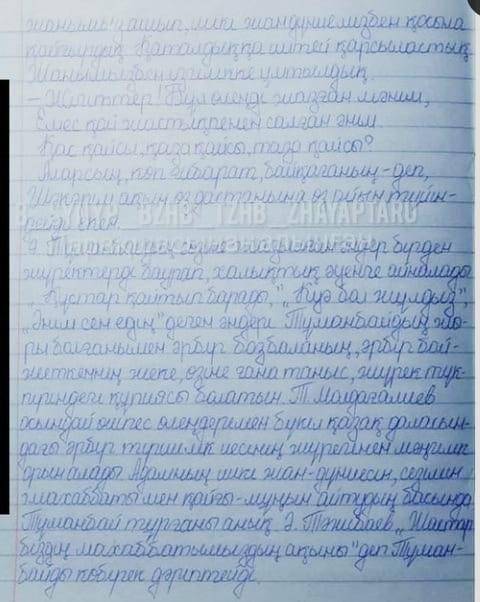 жанымыз ашып, ішкі жан дүниемізбен қосыла
қайғырдық. Қаталдыққа іштей қарсыластық.
Жанымызбен ізгілікке ұмтылдық.
– Жігіттер! Бұл өлеңді жазған мәнім,
Емес қой жастықпенен салған әнім.
Қас қайсы, қаза қайсы, таза қайсы?
Аларсың, көп ғибарат, байқағаның – деп,
Шәкәрім ақын өз дастанына өз ойын түйін-
дейді екен.
BZHB_TZHB_ZHAYAPTARU
Ә. Тұманбайдың сөзіне жазылған әндер бірден
жүректерді баурап, халықтық әуенге айналады.
„Құстар қайтып барады," „Куә бол жұлдыз",
„Әнім сен едің" деген әндері Тұманбайдың жы-
ры болғанымен әрбір бозбаланың, әрбір бой-
жеткеннің жеке, өзіне ғана таныс, жүрек түк-
піріндегі құпиясы болатын. Т. Молдағалиев
осындай жүпес өлеңдерімен бүкіл қазақ даласын-
дағы әрбір тіршілік иесінің жүрегінен мәңгілік
орын алады. Адамның ішкі жан-дүниесін, сезімін
махаббаты мен қайғы-мұңын айтудың басында
Тұманбай тұрғаны анық. Ә. Тәжібаев „Жастар
біздің махаббатымыздың ақыны" деп Тұман-
байды көбірек дәріптейді.